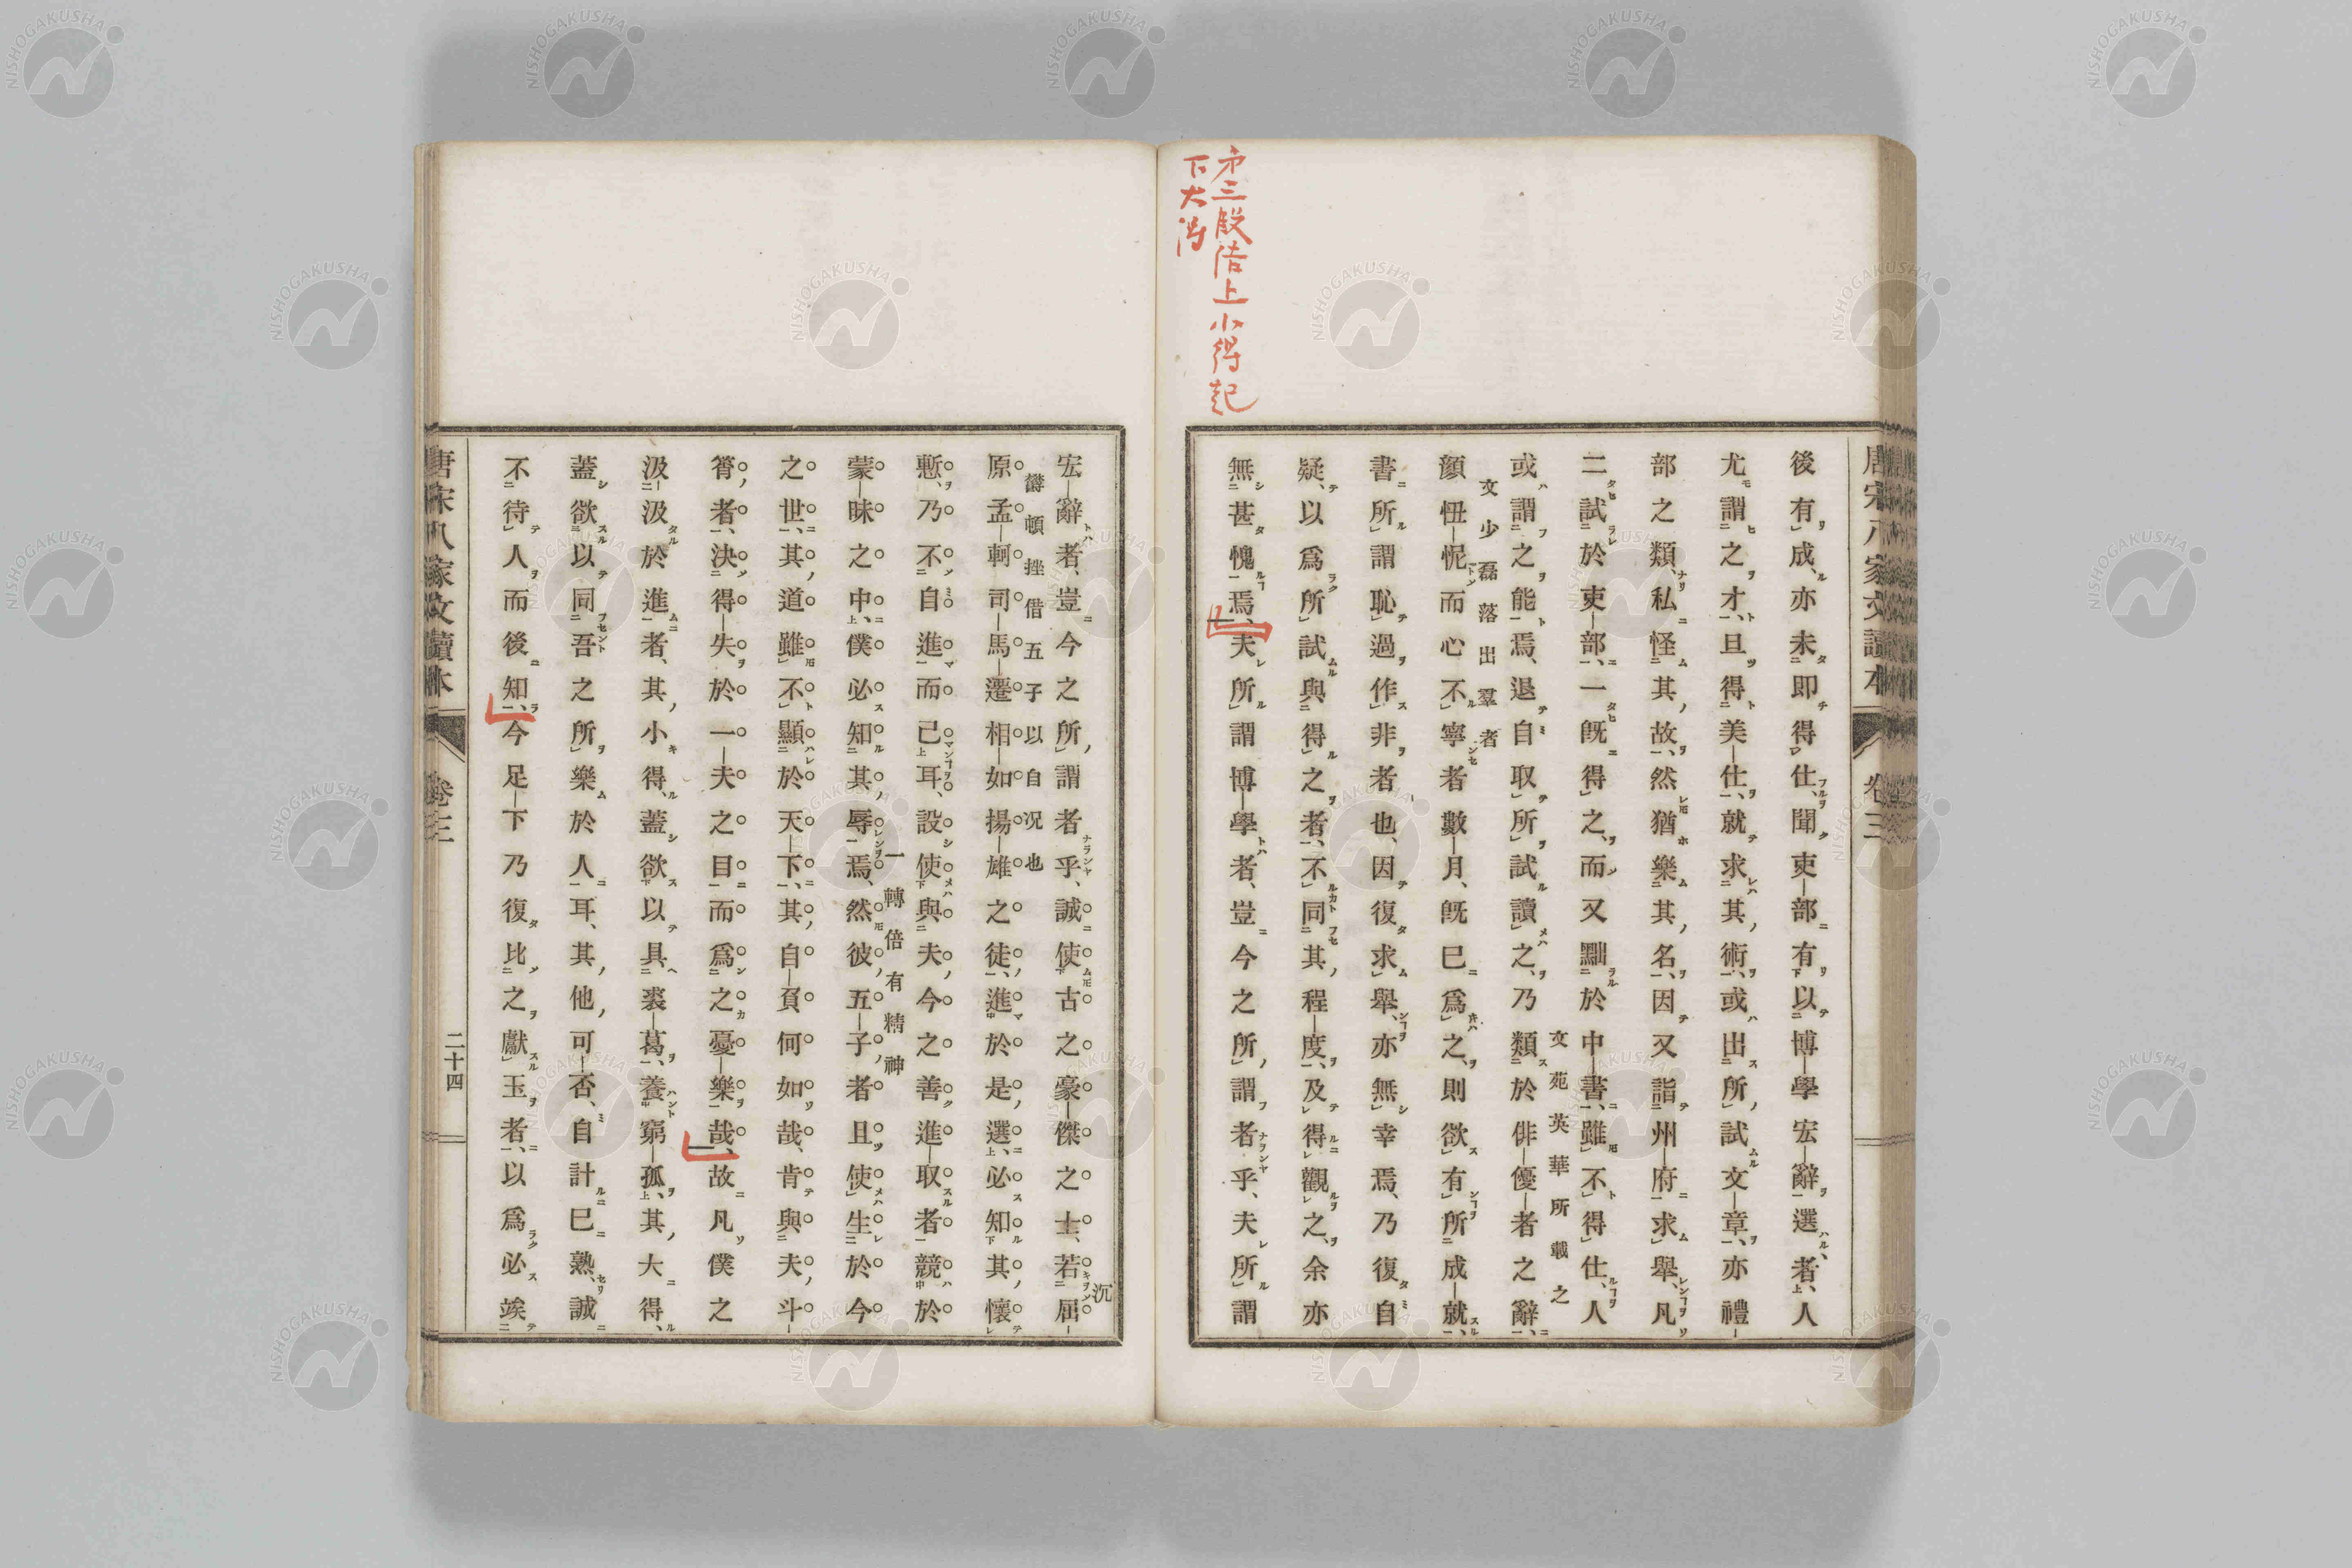 第三段佶上小得起
下大得
唐宋八家文讀本 卷三
後有成亦未即得仕、聞吏部有以博學宏辭選者、人
尤謂之才、且得美仕、就求其術、或出所試文章、亦禮
部之類、私怪其故、然猶樂其名、因又詣州府求舉、凡
二試於吏部、一既得之、而又黜於中書、雖不得仕、人
或謂之能焉、退自取所試讀之、乃類於俳優者之辭、
文苑英華所載之
文少磊落出羣者
顏忸怩而心不寧者數月、既已爲之、則欲有所成就、
書所謂恥過作非者也、因復求舉、亦無幸焉、乃復自
疑、以爲所試與得之者、不同其程度、及得觀之、余亦
無甚愧焉、夫所謂博學者、豈今之所謂者乎、夫所謂
宏辭者、豈今之所謂者乎、誠使古之豪傑之士、若屈
沉
鬱頓挫借五子以自况也
原孟軻司馬遷相如揚雄之徒、進於是選、必知其懷
慙、乃不自進而已耳、設使與夫今之善進取者競於
蒙昧之中、僕必知其辱焉、然彼五子者且使生於今
一轉倍有精神
之世、其道雖不顯於天下、其自負何如哉、肯與夫斗
筲者、決得失於一夫之目而爲之憂樂哉、故凡僕之
汲汲於進者、其小得、蓋欲以具裘葛、養窮孤、其大得、
蓋欲以同吾之所樂於人耳、其他可否、自計已熟、誠
不待人而後知、今足下乃復比之獻玉者、以爲必竢
唐宋八家文讀本 卷三 二十四